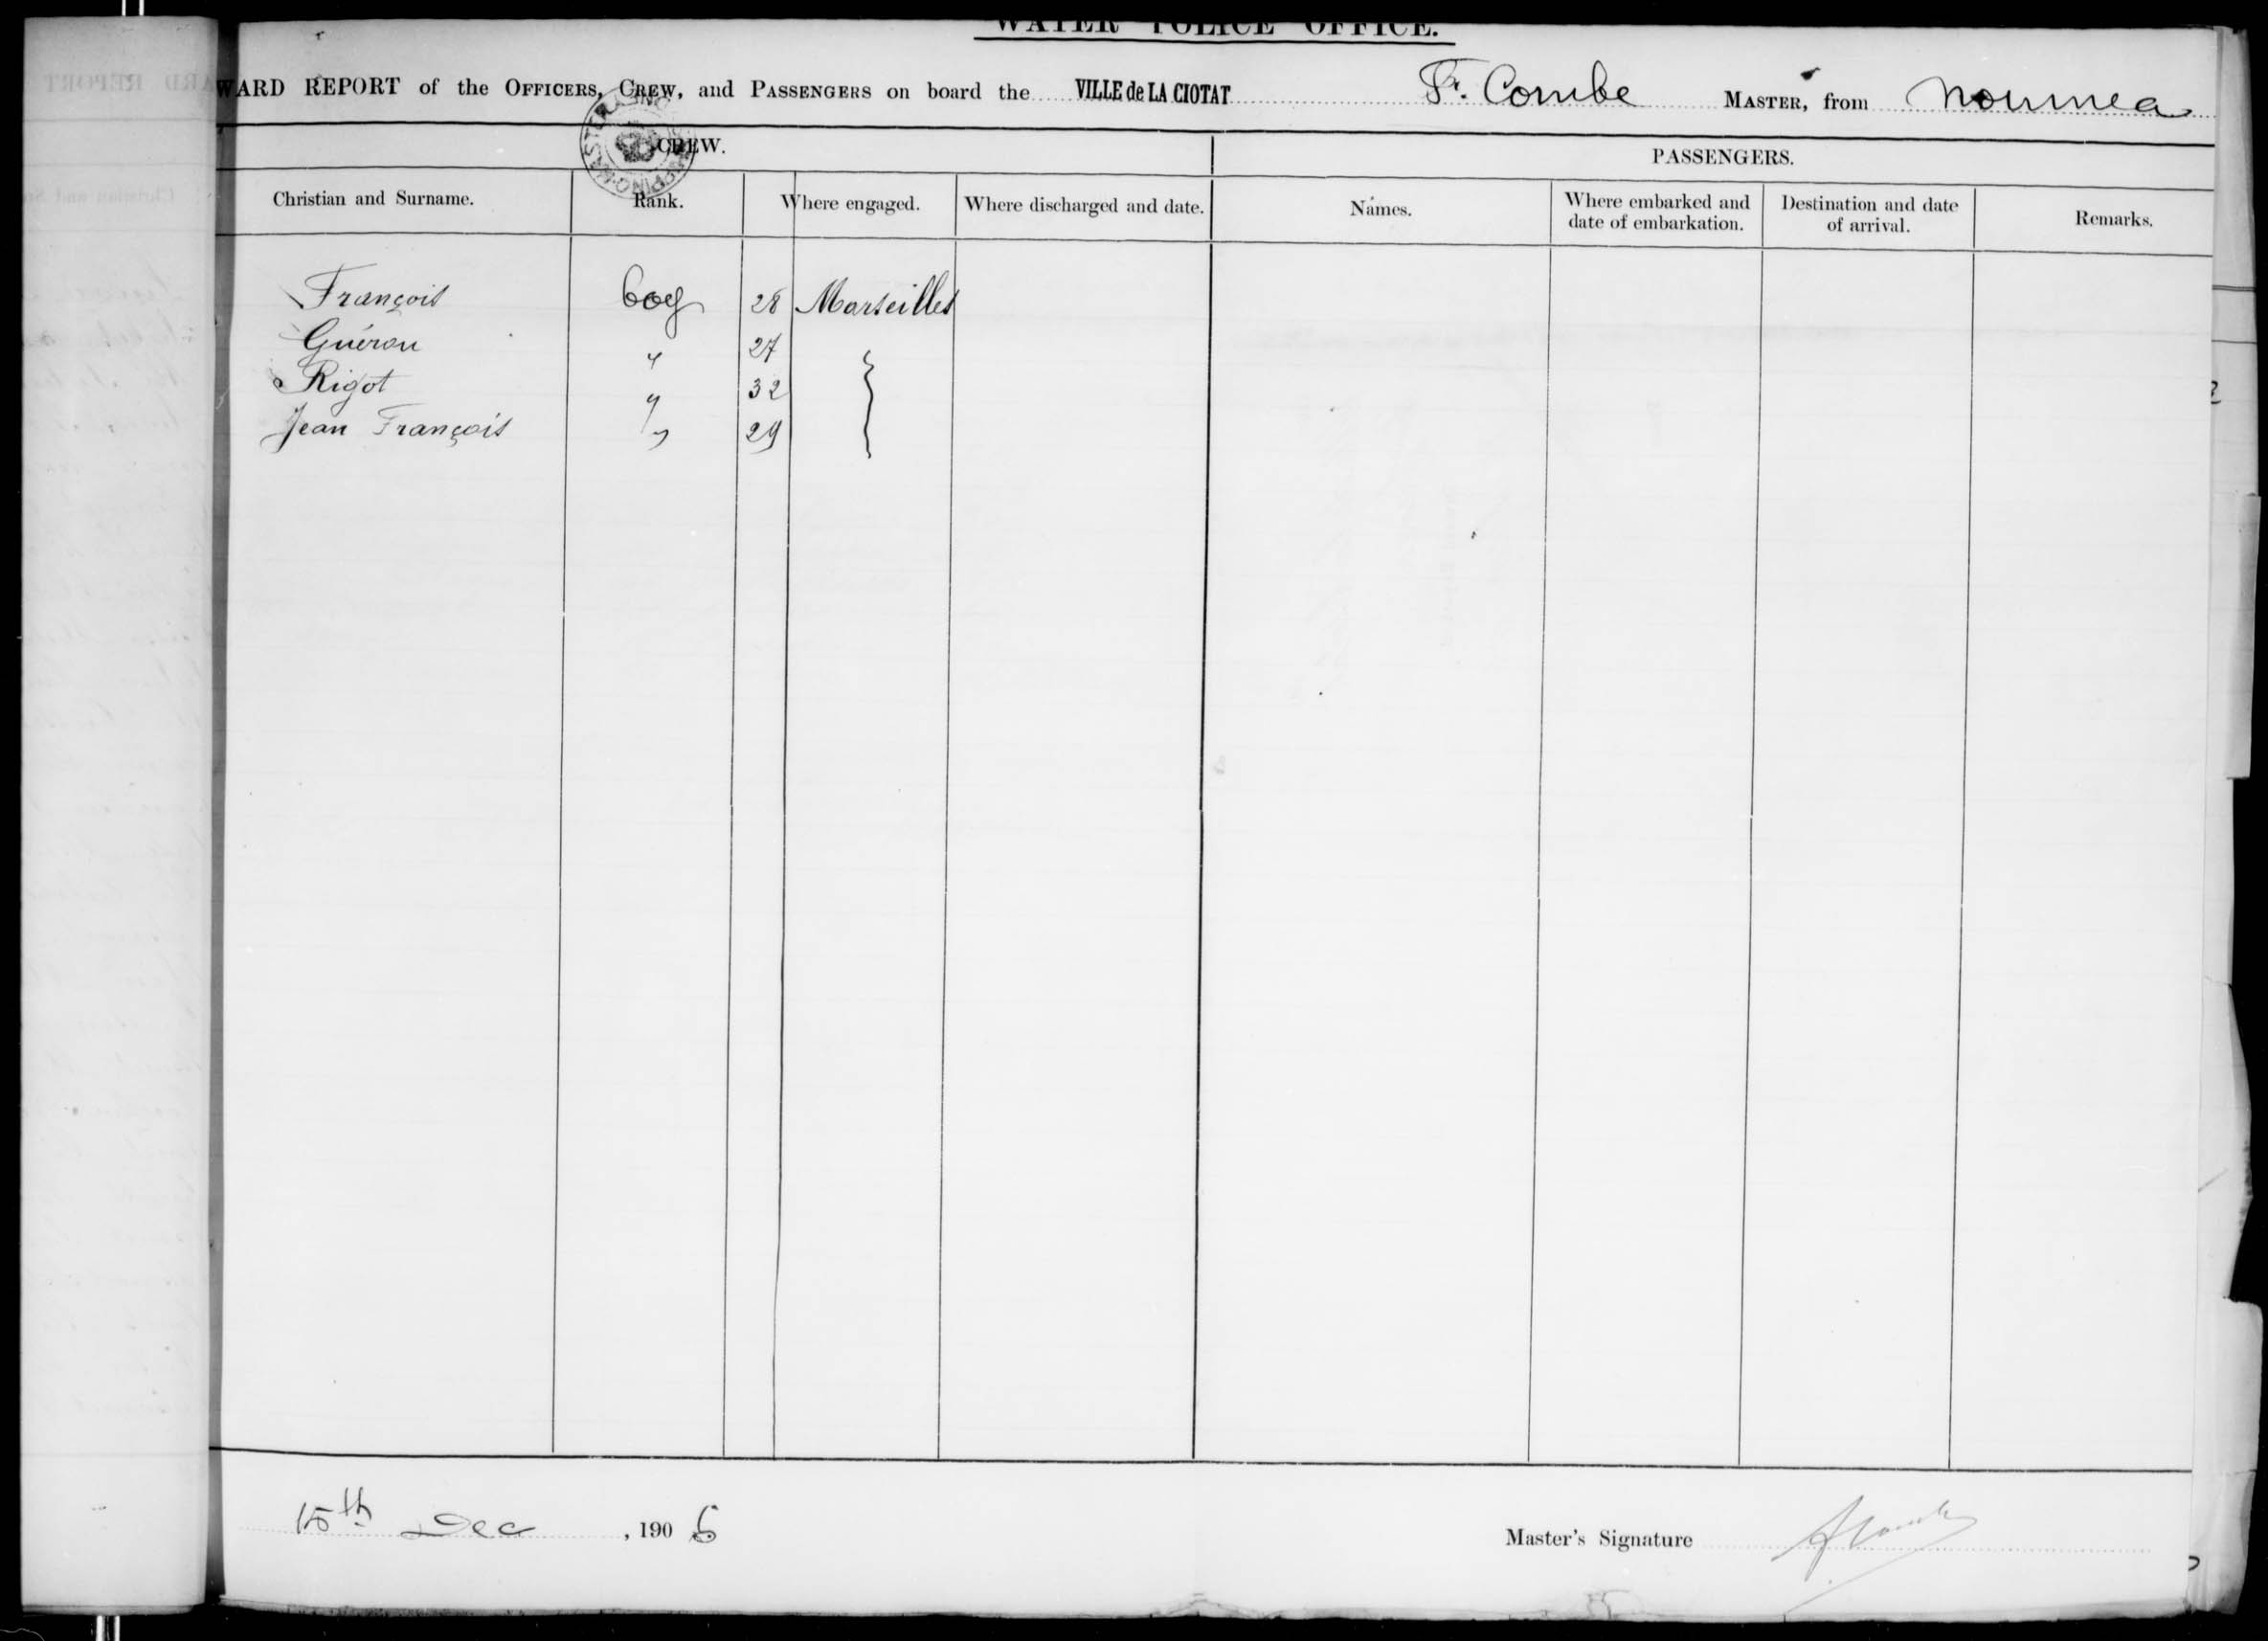 WATER POLICE OFFICE.
WARD REPORT of the OFFICERS, CREW, and PASSENGERS on board the VILLE de LA CIOTAT F. Combe MASTER, from Noumea
CREW.
PASSENGERS.
Christian and Surname.
Rank.
Where engaged.
Where discharged and date.
Names.
Where embarked and date of embarkation.
Destination and date of arrival.
Remarks.
François boy 28 Marseilles
Guéron " 27
Rigot " 32
Jean François " 29
15th Dec, 1906
Master's Signature